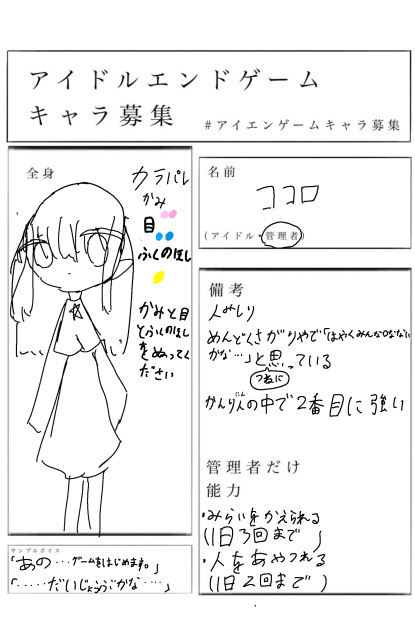 アイドルエンドゲーム
キャラ募集
#アイエンゲームキャラ募集
全身
カラパレ
かみ
目
ふくのほし
かみと目
とふくのほし
をぬってく
ださい
名前
ココロ
(アイドル・管理者)
備考
人みしり
めんどくさがりやで「はやくみんな
かな…」と思っている
つねに
かんりんの中で2番目に強い
管理者だけ
能力
・みらいをかえられる
(1日3回まで)
・人をあやつれる
(1日2回まで)
サンプルボイス
「あの…ゲームをはじめます。」
「.....だいじょうぶかな…」